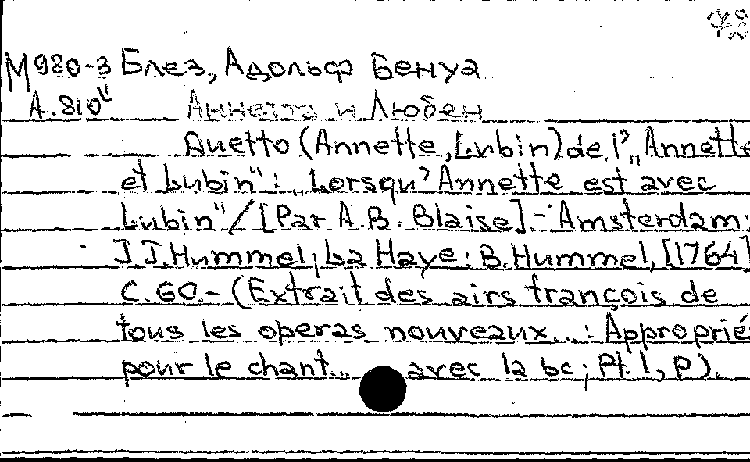 ЧЗ
М980-3 Блез, Адольф Бенуа
А.810" Аннета и Любен
Duetto (Annette, Lubin) de l'„Annette
et Lubin": „Lorsqu'Annette est avec
Lubin"/[Par A.B. Blaise].- Amsterdam:
J.J. Hummel; La Haye: B. Hummel, [1764]
С. 60.- (Extrait des airs françois de
tous les operas nouveaux...: Approprié
pour le chant... avec la bc; Pt. 1, P).